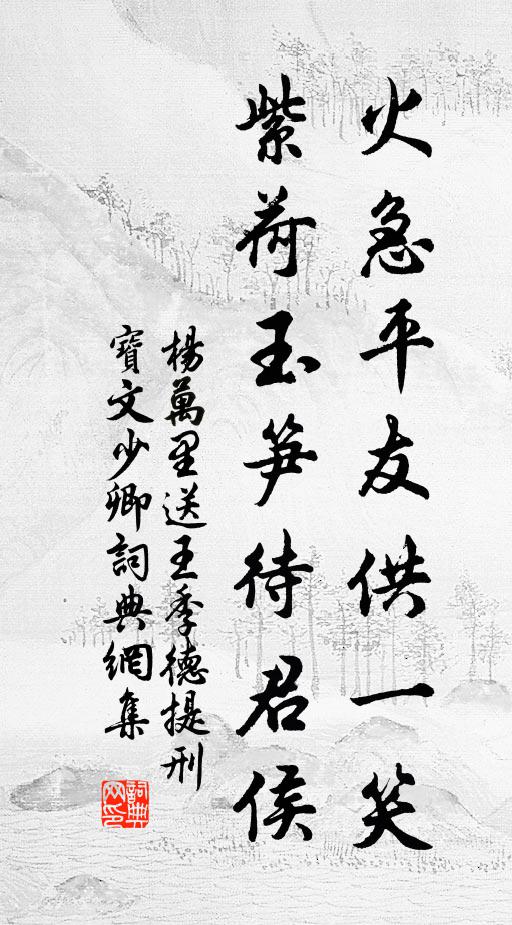 火急平友供一笑
紫荷玉笋待君侯
楊萬里送王季德提刑
寶文少卿詞典網集
詞典
网印